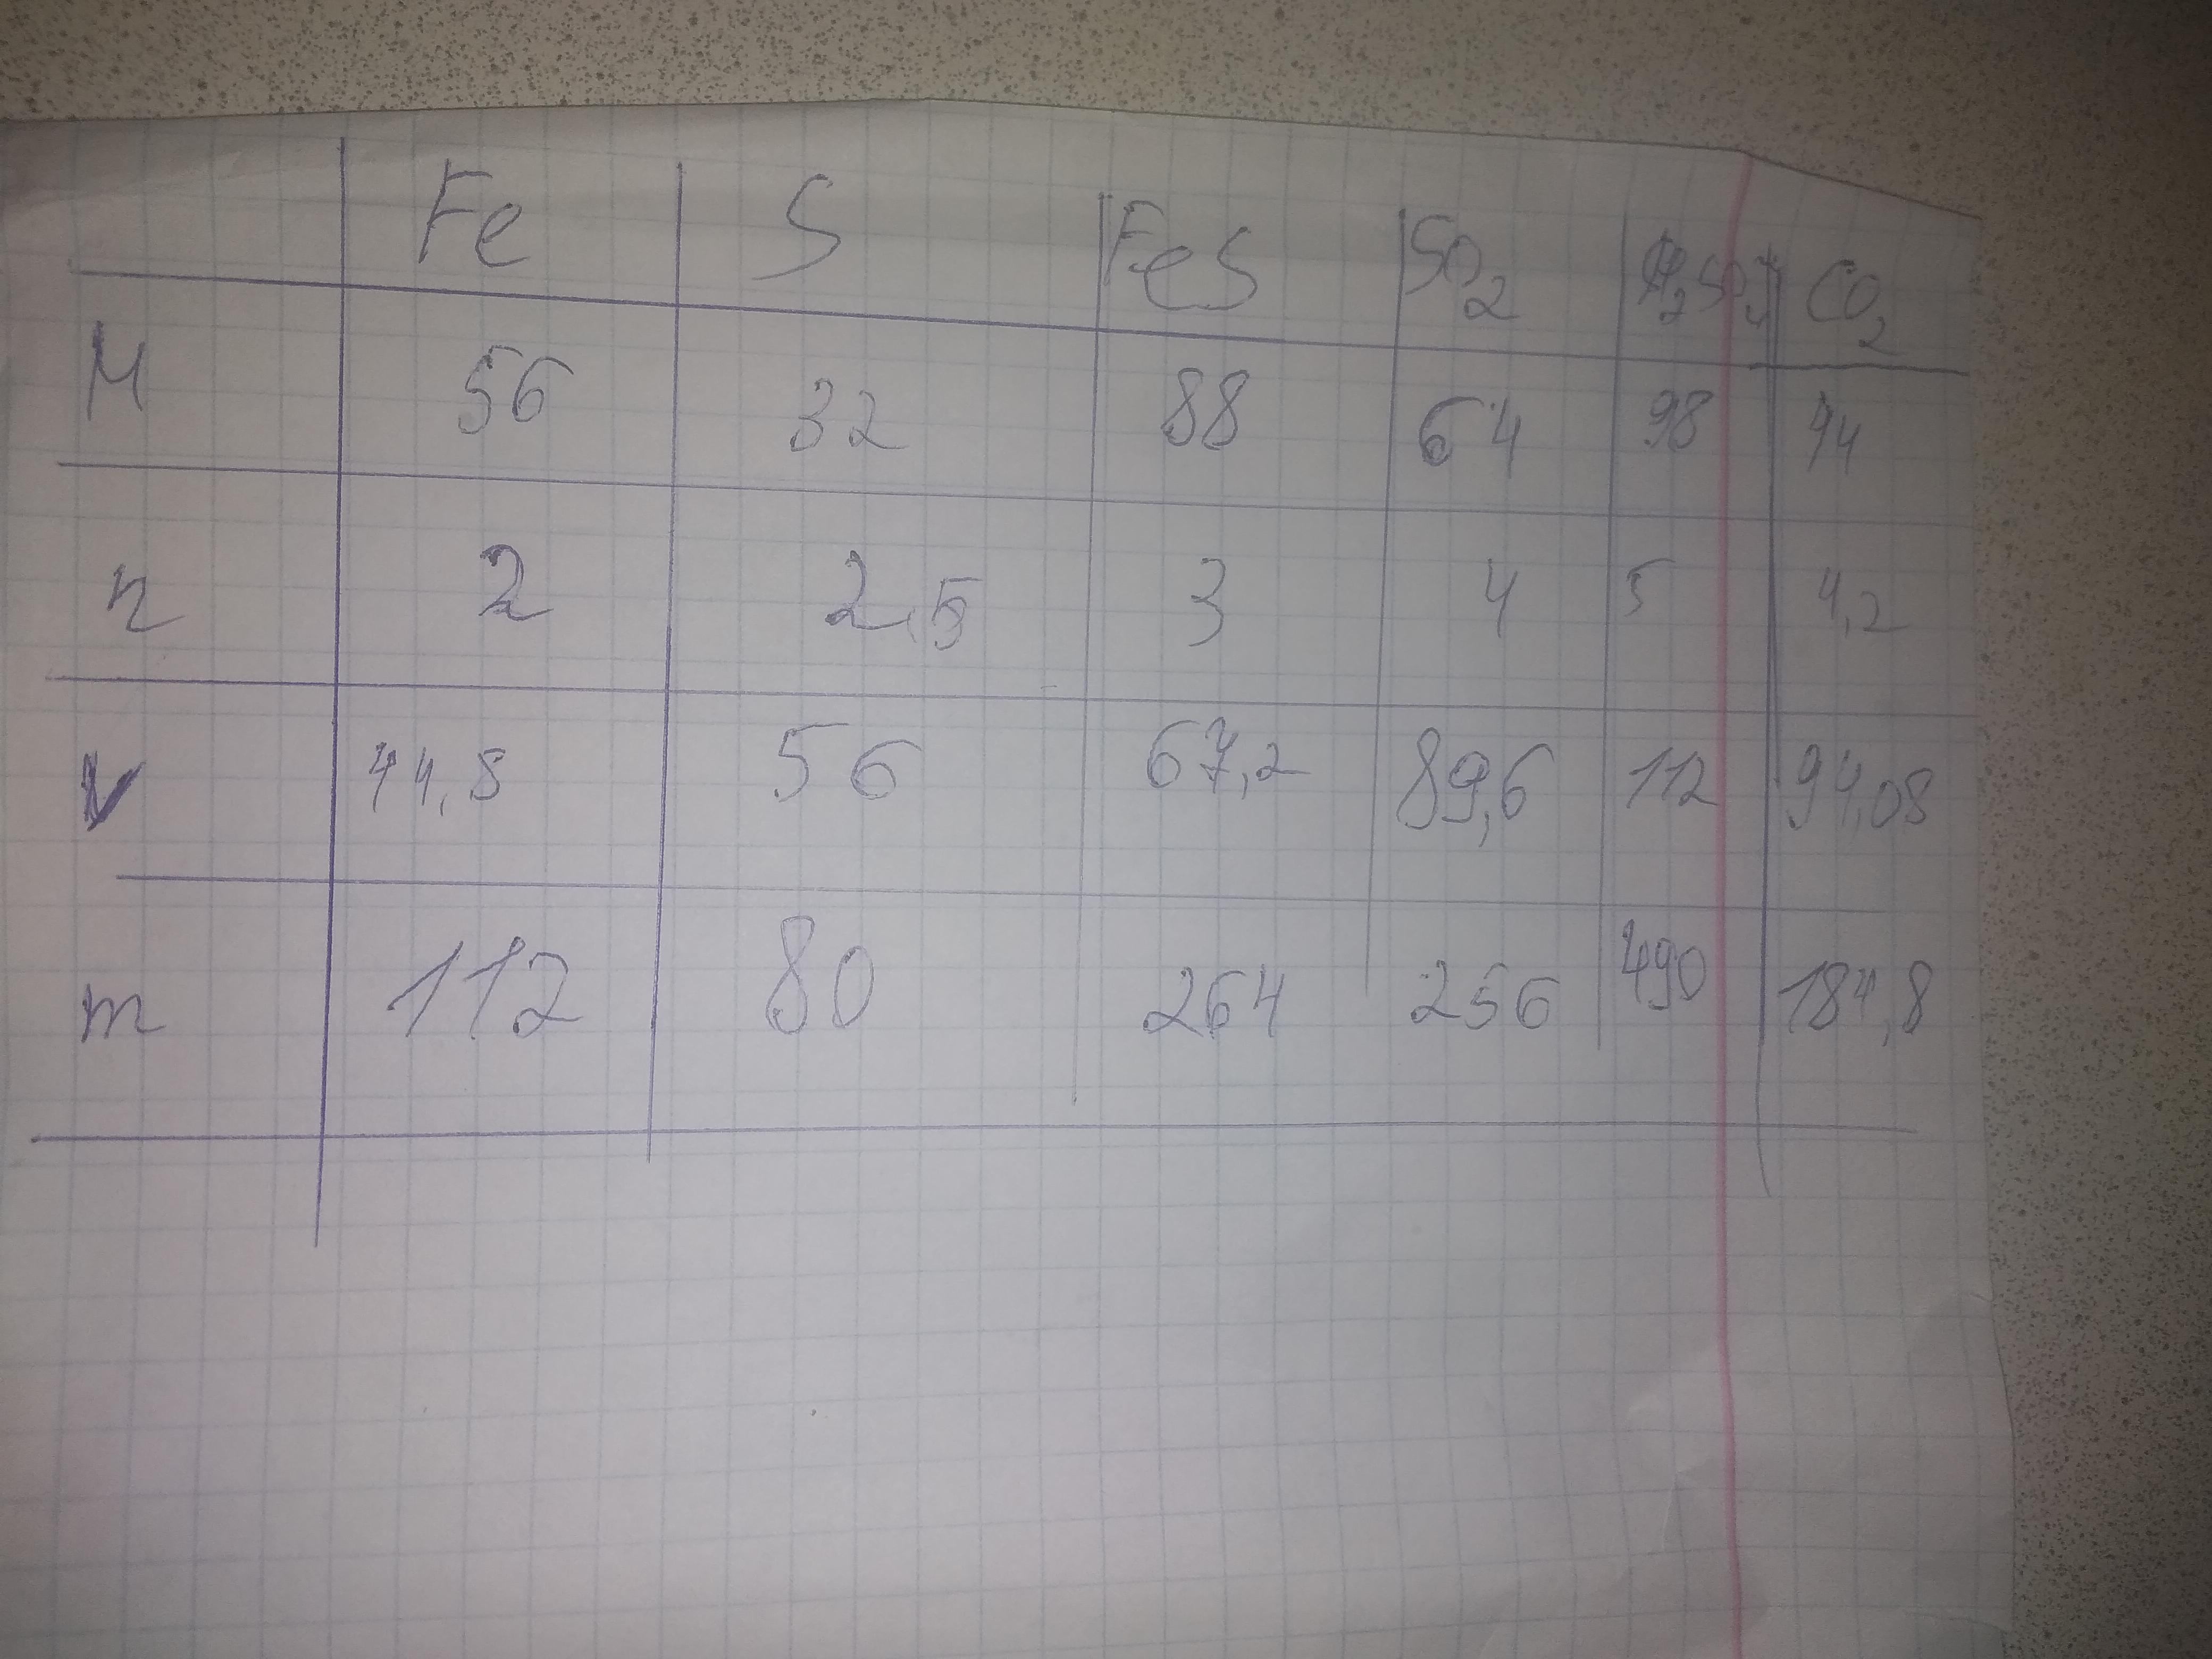 Fe S FeS SO2 H2SO4 CO2
M 56 32 88 64 98 44
n 2 2,5 3 4 5 4,2
V 44,8 56 67,2 89,6 112 94,08
m 112 80 264 256 490 184,8